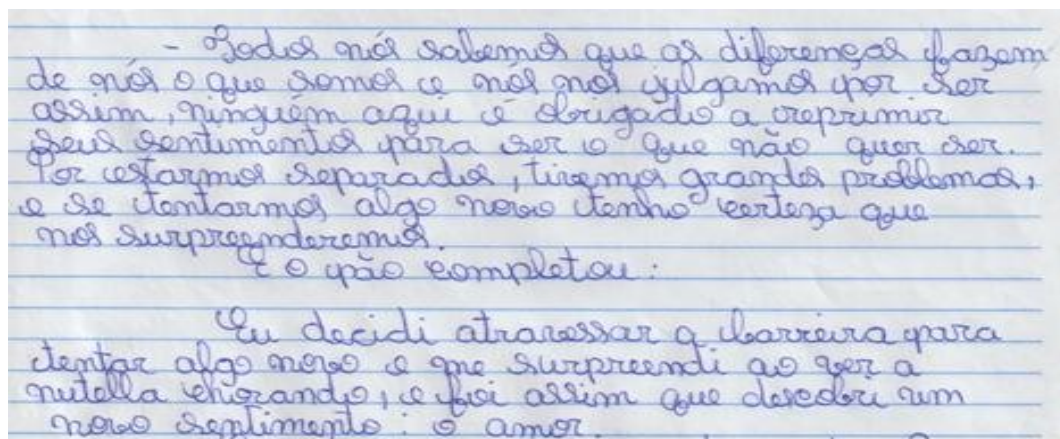 - Todos nós sabemos que as diferenças fazem
de nós o que somos e nós nos julgamos por ser
assim, ninguém aqui é obrigado a reprimir
seus sentimentos para ser o que não quer ser.
Por estarmos separados, tivemos grandes problemas,
e se tentarmos algo novo tenho certeza que
nos surpreenderemos.
E o pão completou:
Eu decidi atravessar a barreira para
tentar algo novo e me surpreendi ao ver a
nutella chorando, e foi assim que descobri um
novo sentimento: o amor.